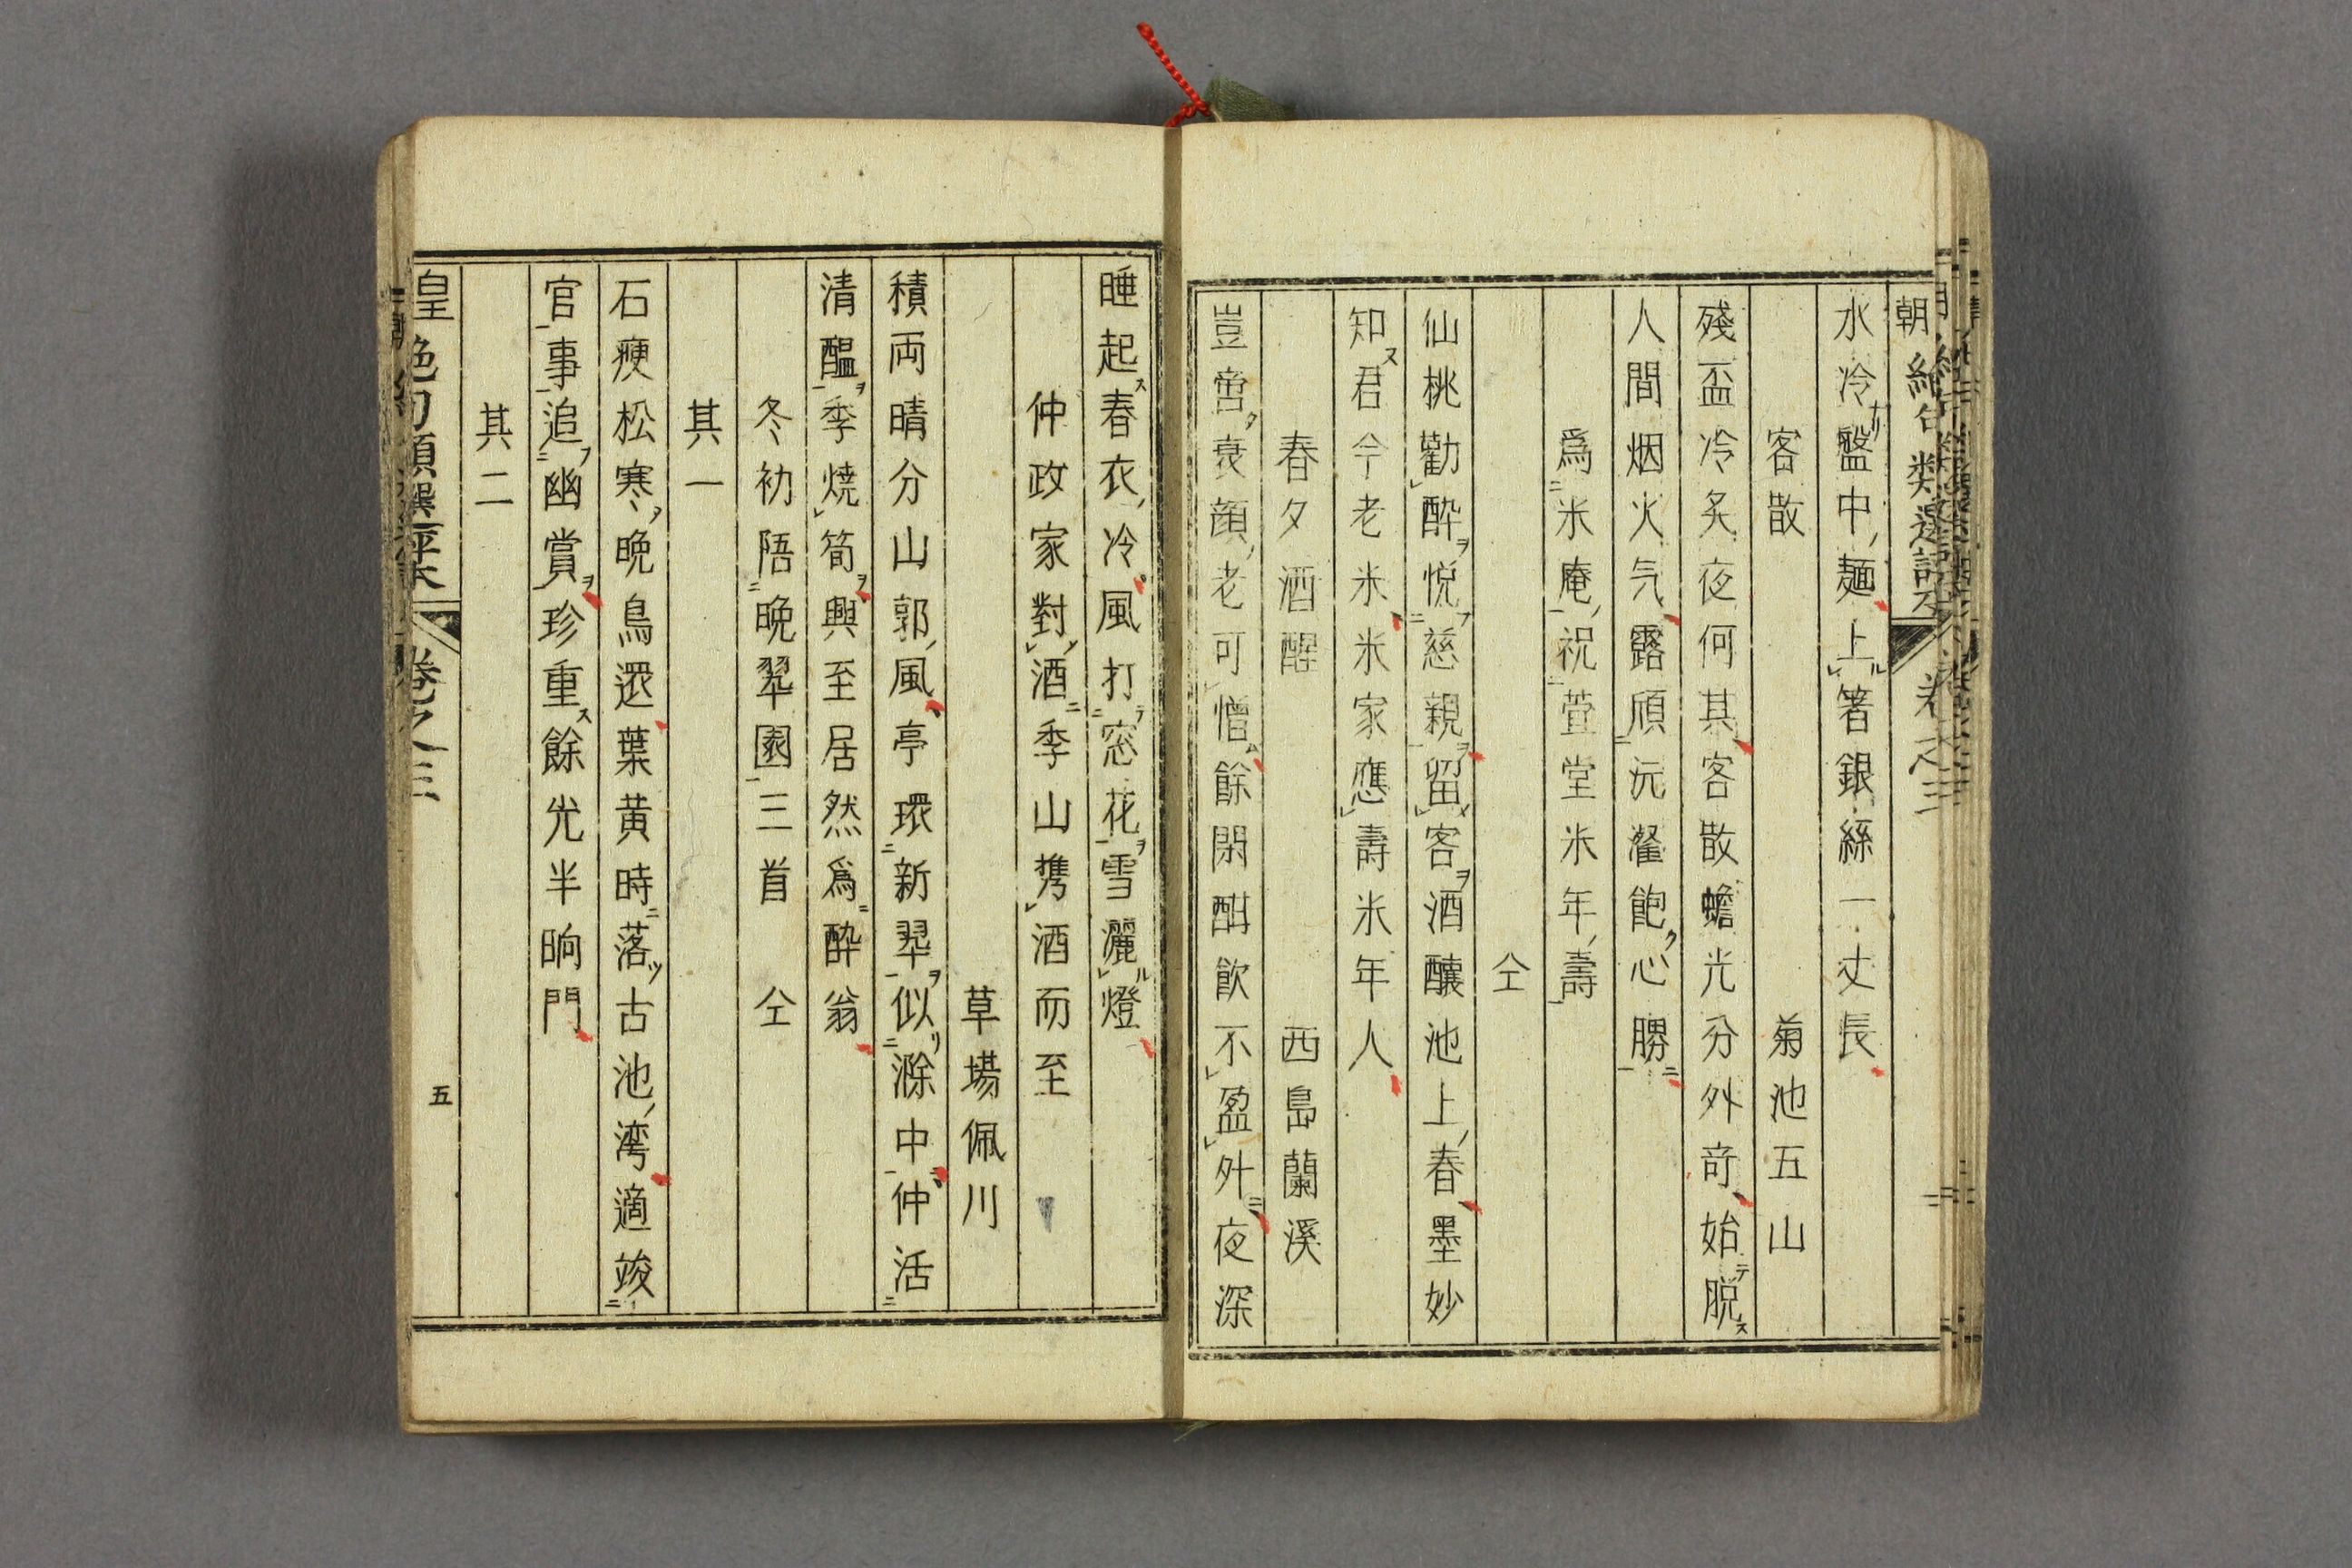 水冷盤中麺上箸銀絲一丈長
客散　菊池五山
殘盃冷炙夜何其客散蟾光分外奇始脱
人間烟火气露頎沆瀣飽心脾
爲米庵祝萱堂米年壽
仝
仙桃勸酔悦慈親留客酒釀池上春墨妙
知君今老米米家應壽米年人
春夕酒醒　西島蘭溪
豈啻衰顔老可憎餘閑酣飲不盈升夜深
睡起春衣冷風打窓花雪灑燈
仲政家對酒季山携酒而至
草場佩川
積雨晴分山郭風亭環新翠似滁中仲活
清醖季燒筍興至居然爲酔翁
冬初陪晩翠園三首　仝
其一
石瘦松寒晩鳥還葉黄時落古池湾適竣
官事追幽賞珍重餘光半晌門
其二
卷之三
五